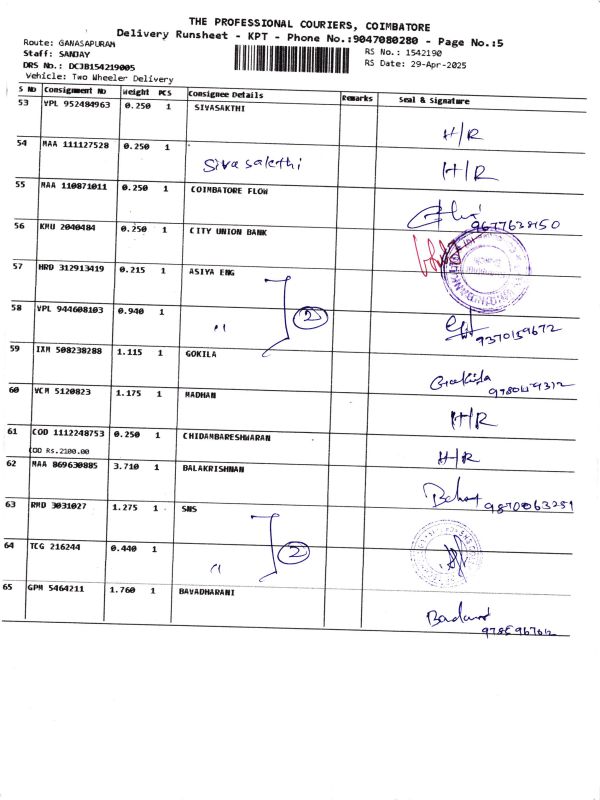 THE PROFESSIONAL COURIERS, COIMBATORE
Delivery Runsheet - KPT - Phone No.:9047080280 - Page No.:5
Route: GANASAPURAM
RS No.: 1542190
Staff: SANJAY
RS Date: 29-Apr-2025
DRS No.: DCJB154219005
Vehicle: Two Wheeler Delivery
S No Consignment No Weight PCS Consignee Details Remarks Seal & Signature
53 VPL 952484963 0.250 1 SIVASAKTHI H/R
54 MAA 111127528 0.250 1 Siva sakthi H/R
55 MAA 110871011 0.250 1 COIMBATORE FLOW
56 KMU 2040484 0.250 1 CITY UNION BANK
57 HRD 312913419 0.215 1 ASIYA ENG
58 VPL 944608103 0.940 1 " 2 9370159672
59 IXM 508238288 1.115 1 GOKILA Gokila
60 VCM 5120823 1.175 1 MADHAN H/R
61 COD 1112248753 0.250 1 CHIDAMBARESHWARAN H/R
COD Rs.2100.00
62 MAA 869630885 3.710 1 BALAKRISHNAN
63 RMD 3031027 1.275 1 SNS
64 TCG 216244 0.440 1 " 2
65 GPM 5464211 1.760 1 BAVADHARANI